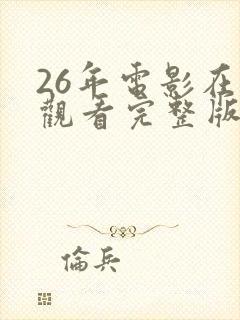 26年電影在
觀看完整版
倫兵